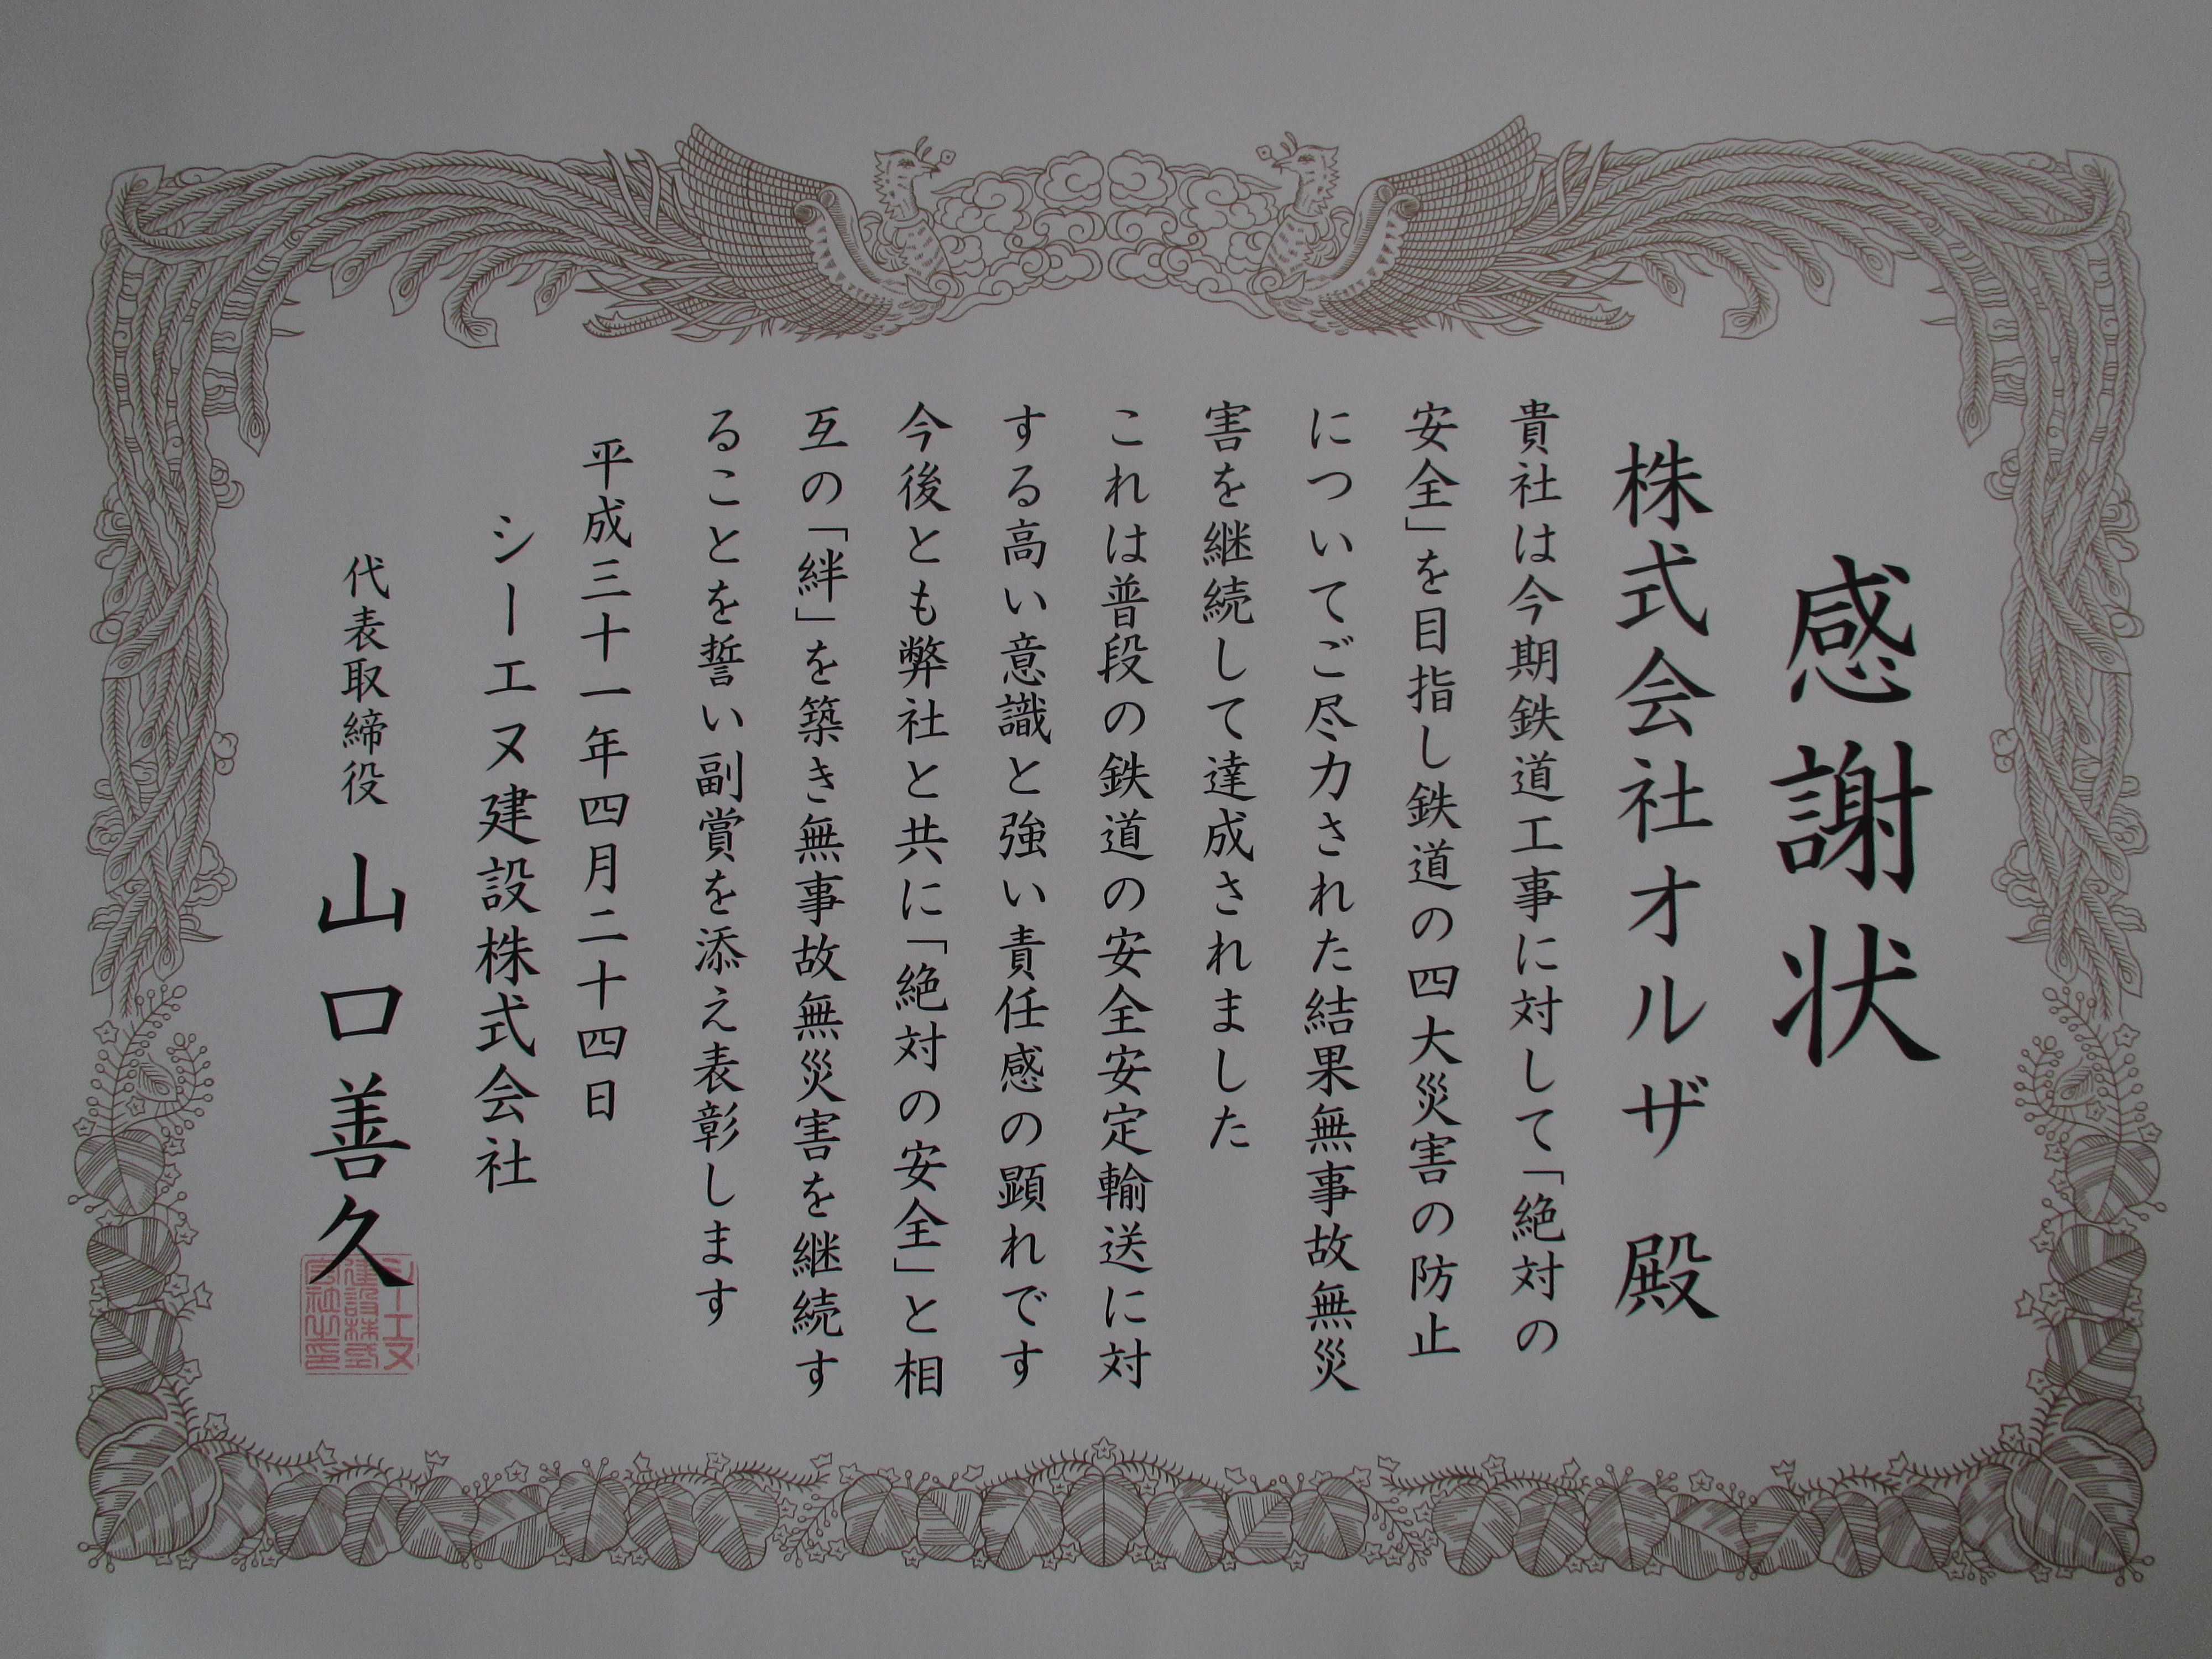 感謝状
株式会社オルザ 殿
貴社は今期鉄道工事に対して「絶対の
安全」を目指し鉄道の四大災害の防止
についてご尽力された結果無事故無災
害を継続して達成されました
これは普段の鉄道の安全安定輸送に対
する高い意識と強い責任感の顕れです
今後とも弊社と共に「絶対の安全」と相
互の「絆」を築き無事故無災害を継続す
ることを誓い副賞を添え表彰します
平成三十一年四月二十四日
シーエヌ建設株式会社
代表取締役 山口善久
シーエヌ
建設株式
会社之印